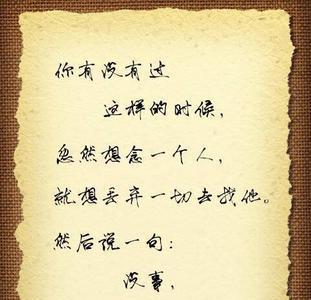 你有没有过
这样的时候，
忽然想念一个人，
就想丢弃一切去找他。
然后说一句：
没事，